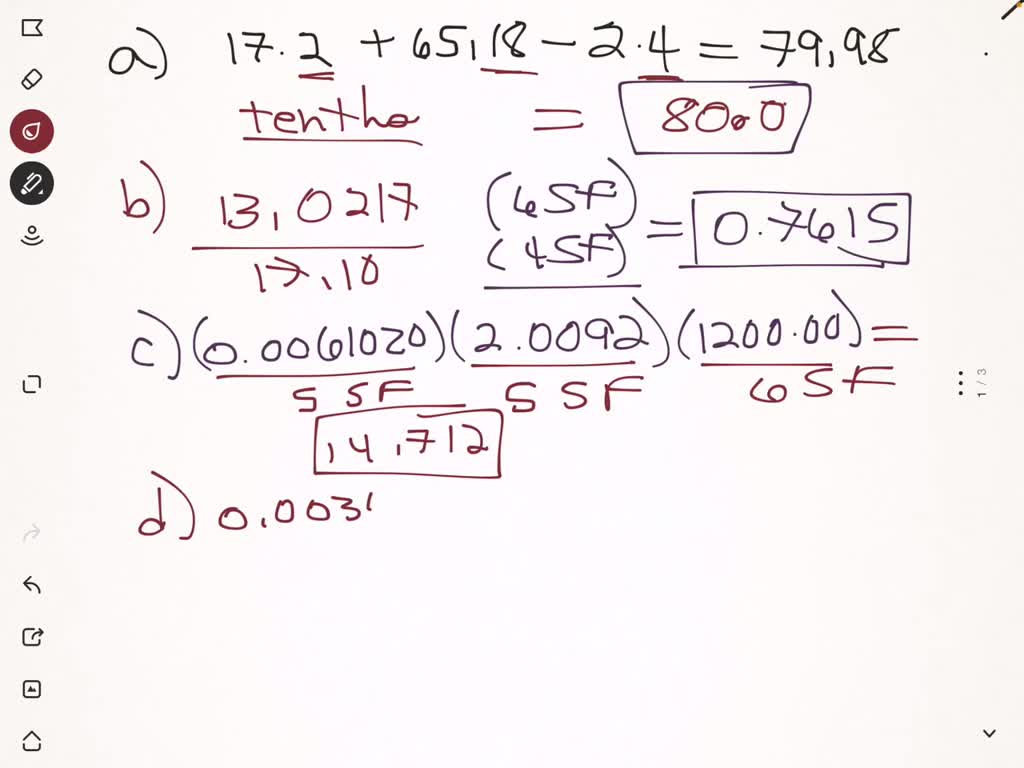 a) 17.2 + 65.18 - 2.4 = 79.98
tenths = 80.0
b) 13.0217 (6SF) = 0.7615
17.10 (4SF)
c) (0.0061020) (2.0092) (1200.00) =
5 SF 5 SF 6 SF
14.712
d) 0.003
1 / 3